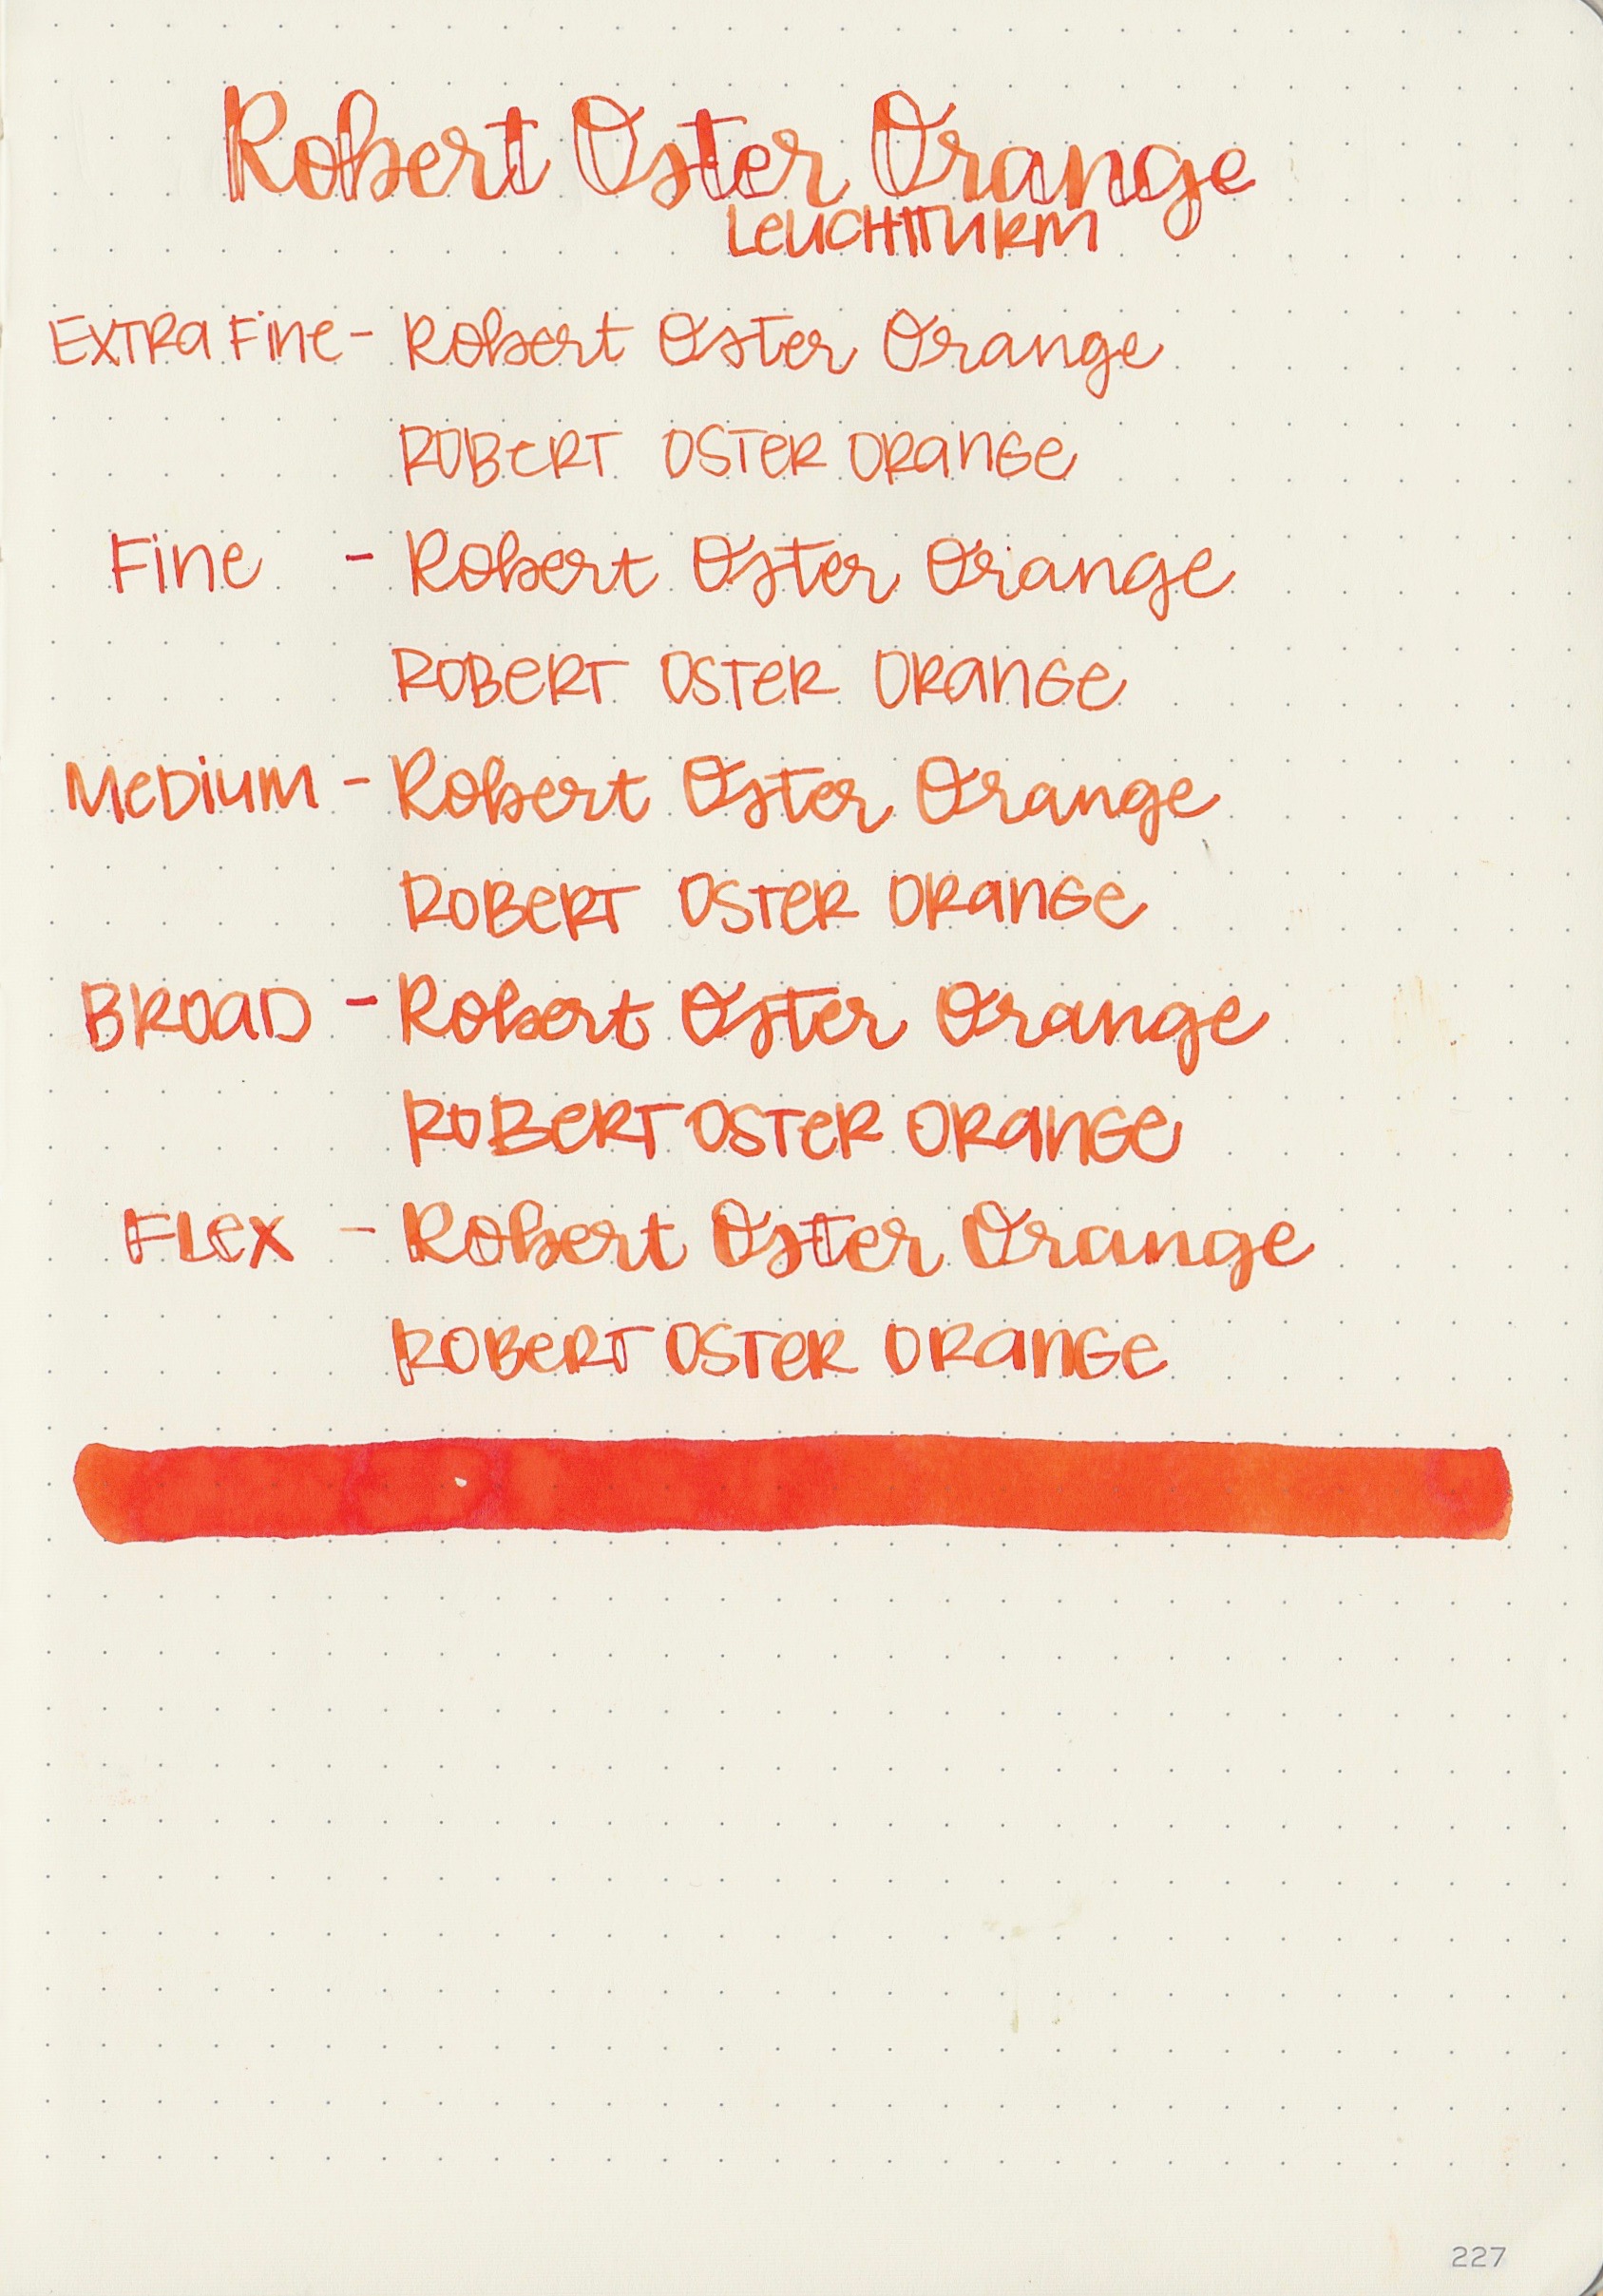 Robert Oster Orange
LEUCHTTURM
EXTRA FINE - Robert Oster Orange
ROBERT OSTER ORANGE
FINE - Robert Oster Orange
ROBERT OSTER ORANGE
MEDIUM - Robert Oster Orange
ROBERT OSTER ORANGE
BROAD - Robert Oster Orange
ROBERT OSTER ORANGE
FLEX - Robert Oster Orange
ROBERT OSTER ORANGE
227